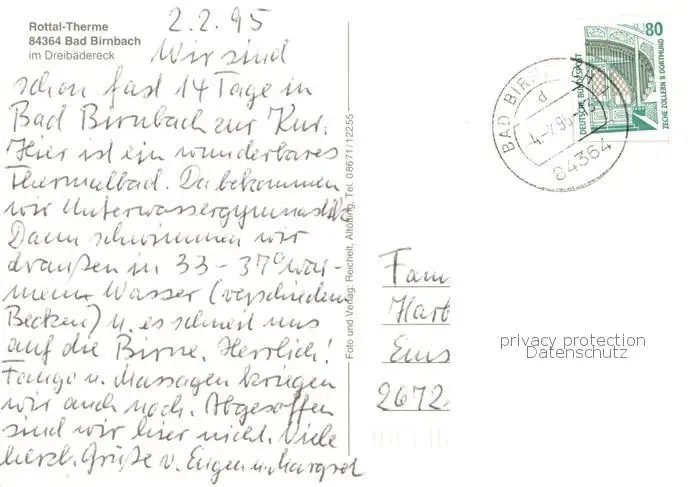 2.2.95
Rottal-Therme
84364 Bad Birnbach
im Dreibädereck
Wir sind
schon fast 14 Tage in
Bad Birnbach zur Kur.
Hier ist ein wunderbares
Thermalbad. Da bekommen
wir Unterwassergymnastik
Dann schwimmen wir
draußen in 33-37° war-
mem Wasser (verschiedene
Becken) u. es schneit uns
auf die Birne. Herrlich!
Fango u. Massagen kriegen
wir auch noch. Abgesoffen
sind wir hier nicht. Viele
herzl. Grüße v. Eugen u. Margret
Foto und Verlag: Reichelt, Altötting, Tel. 08671/12255
BAD BIRN
d
84364
80
DEUTSCHE BUNDESPOST
ZECHE ZOLLERN II DORTMUND
Fam
Harb
Ems
2672
privacy protection
Datenschutz